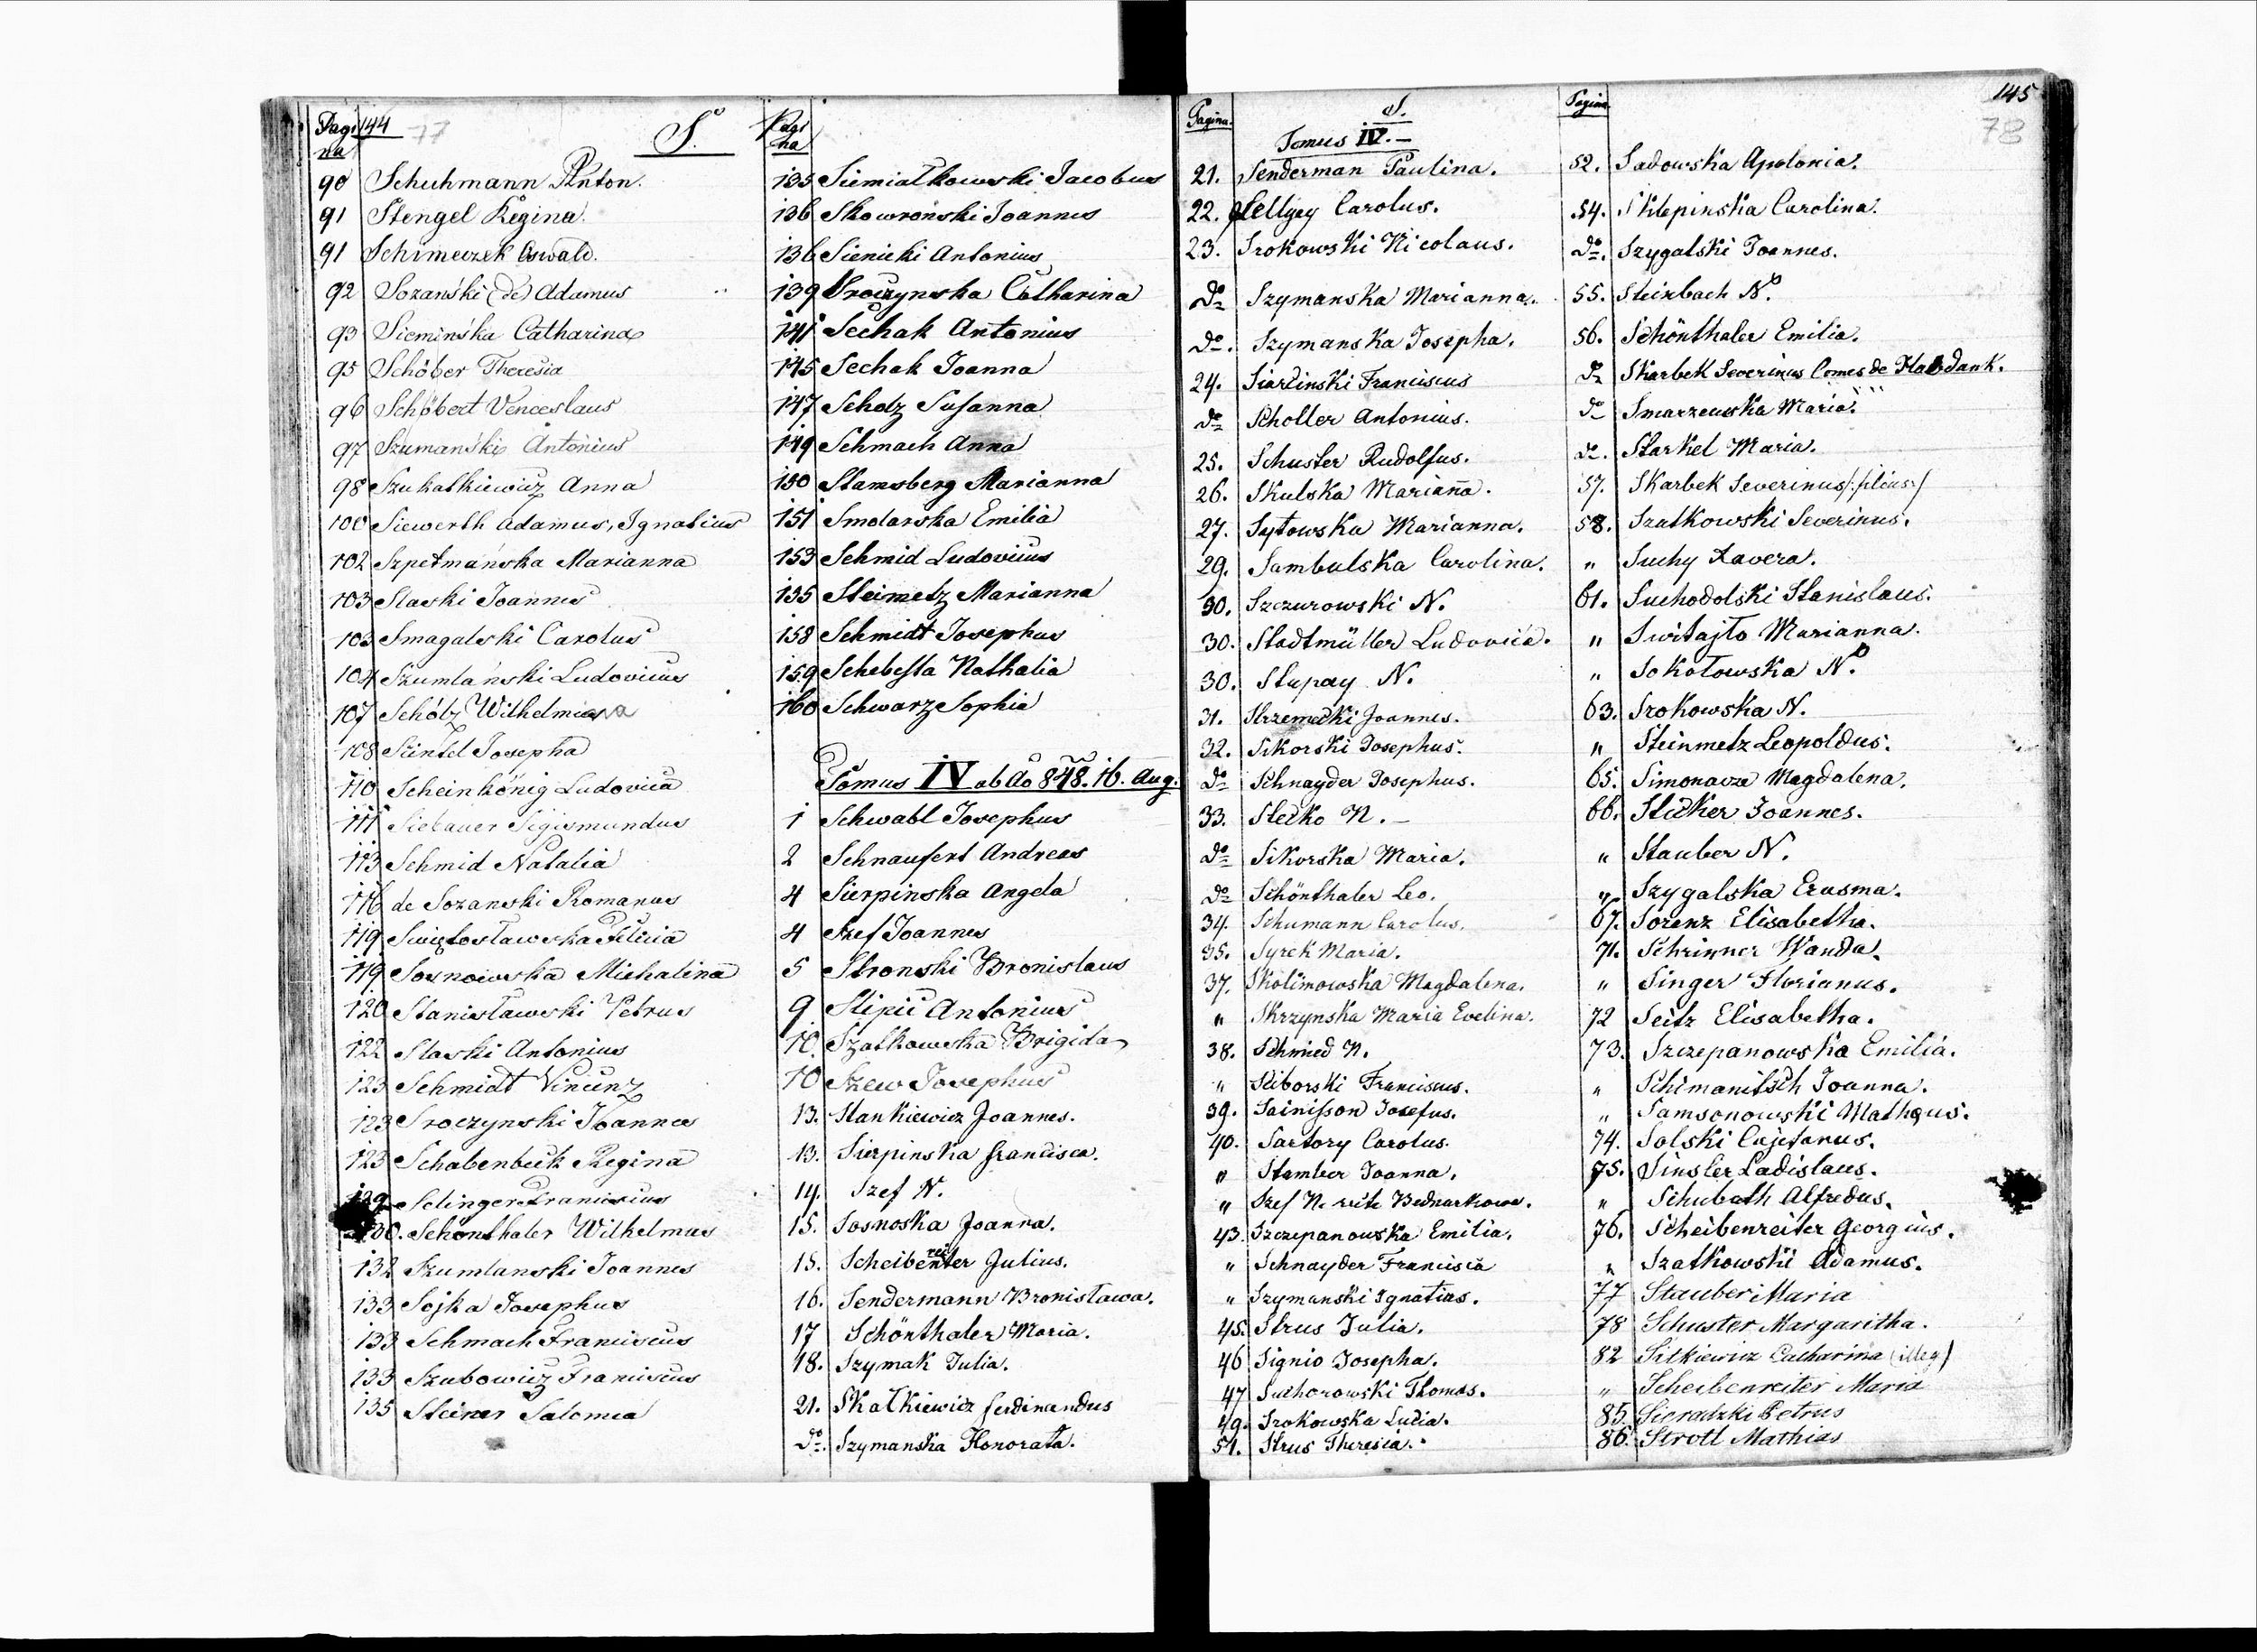 Pagina 144 77 S. Pagina
90 Schuhmann Anton.
91 Stengel Regina.
91 Schimeczek Oswald.
92 Sozański (de) Adamus
93 Siemińska Catharina
95 Schöber Theresia
96 Schöbert Venceslaus
97 Szumański Antonius
98 Szukatkiewicz Anna
100 Siewerth Adamus, Ignatius
102 Szpetmańska Marianna
103 Slaski Joannes
103 Smagalski Carolus
104 Szumlański Ludovicus
107 Schólz Wilhelmina
108 Szintel Josepha
110 Scheinkönig Ludovica
111 Siebauer Sigismundus
113 Schmid Natalia
116 de Sozanski Romanus
119 Swiętosławska Felicia
119 Sosnowska Michalina
120 Stanisławski Petrus
122 Slaski Antonius
123 Schmidt Vincenz
123 Sroczynski Joannes
123 Schabenbeck Regina
129 Selinger Franciscus
130. Schönthaler Wilhelmus
132 Szumlanski Joannes
133 Sojka Josephus
133 Schmach Franciscus
133 Szubowicz Franciscus
135 Steiner Salomea
135 Siemiatkowski Jacobus
136 Skowroński Joannes
136 Sienicki Antonius
139 Sroczynska Catharina
141 Sechak Antonius
145 Sechak Joanna
147 Scholz Susanna
149 Schmach Anna
150 Stamsberg Marianna
151 Smolarska Emilia
153 Schmid Ludovicus
155 Steimetz Marianna
158 Schmidt Josephus
159 Schebesta Nathalia
160 Schwarz Sophia
Tomus IV ab Ao 848. 16. Aug.
1 Schwabl Josephus
2 Schnaufert Andreas
4 Sierpinska Angela
4 Szef Joannes
5 Stronski Bronislaus
9 Stipić Antonius
10. Szatkowska Brigida
10 Szew Josephus
13. Stankiewicz Joannes.
13. Sierpinska Francisca.
14. Szef N.
15. Sosnoska Joanna.
15. Scheibenreiter Julius.
16. Sendermann Bronisława.
17 Schönthaler Maria.
18. Szymak Julia.
21. Skałkiewicz Ferdinandus
do. Szymanska Honorata.
Pagina. S. Pagina 145
Tomus IV. – 78
21. Senderman Paulina.
22. Sellgey Carolus.
23. Srokowski Nicolaus.
do Szymanska Marianna.
do. Szymanska Josepha.
24. Siarcinski Franciscus
do Scholler Antonius.
25. Schuster Rudolfus.
26. Skulska Mariana.
27. Sytowska Marianna.
29. Sambulska Carolina.
30. Szczurowski N.
30. Stadtmüller Ludovica.
30. Stupay N.
31. Strzemecki Joannes.
32. Sikorski Josephus.
do Schnayder Josephus.
33. Stecko N. –
do Sikorska Maria.
do Schönthaler Leo.
34. Schumann Carolus.
35. Syrek Maria.
37. Skolimowska Magdalena.
" Skrzynska Maria Evelina.
38. Schmied N.
" Sciborski Franciscus.
39. Sainisson Josefus.
40. Sartory Carolus.
" Stamber Joanna.
" Szef N. recte Bednarkowa.
43. Szczepanowska Emilia.
" Schnayder Francisca
" Szymanski Ignatius.
45. Strus Julia.
46 Signio Josepha.
47 Suchorowski Thomas.
49. Srokowska Lucia.
51. Strus Theresia.
52. Sadowska Apolonia.
54. Sklepinska Carolina.
do. Szygalski Joannes.
55. Steinbach N.
56. Schönthaler Emilia.
do Skarbek Severinus Comes de Habdank.
do Smarzewska Maria.
do. Starkel Maria.
57. Skarbek Severinus /:filius:/
58. Szatkowski Severinus.
" Suchy Xavera.
61. Suchodolski Stanislaus.
" Switajło Marianna.
" Sokołowska N.
63. Srokowska N.
" Steinmetz Leopoldus.
65. Simonavze Magdalena.
66. Sticker Joannes.
" Stauber N.
" Szygalska Erasma.
67. Sorenz Elisabetha.
71. Schrinner Wanda.
" Singer Florianus.
72 Seitz Elisabetha.
73. Szczepanowska Emilia.
" Schimanitsch Joanna.
" Samsonowski Matheus.
74. Solski Cajetanus.
75. Sinsler Ladislaus.
" Schubath Alfredus.
76. Scheibenreiter Georgius.
" Szatkowski Adamus.
77 Stauber Maria
78 Schuster Margaritha.
82 Sitkiewicz Catharina (illeg)
" Scheibenreiter Maria
85. Sieradzki Petrus
86. Strotl Mathias